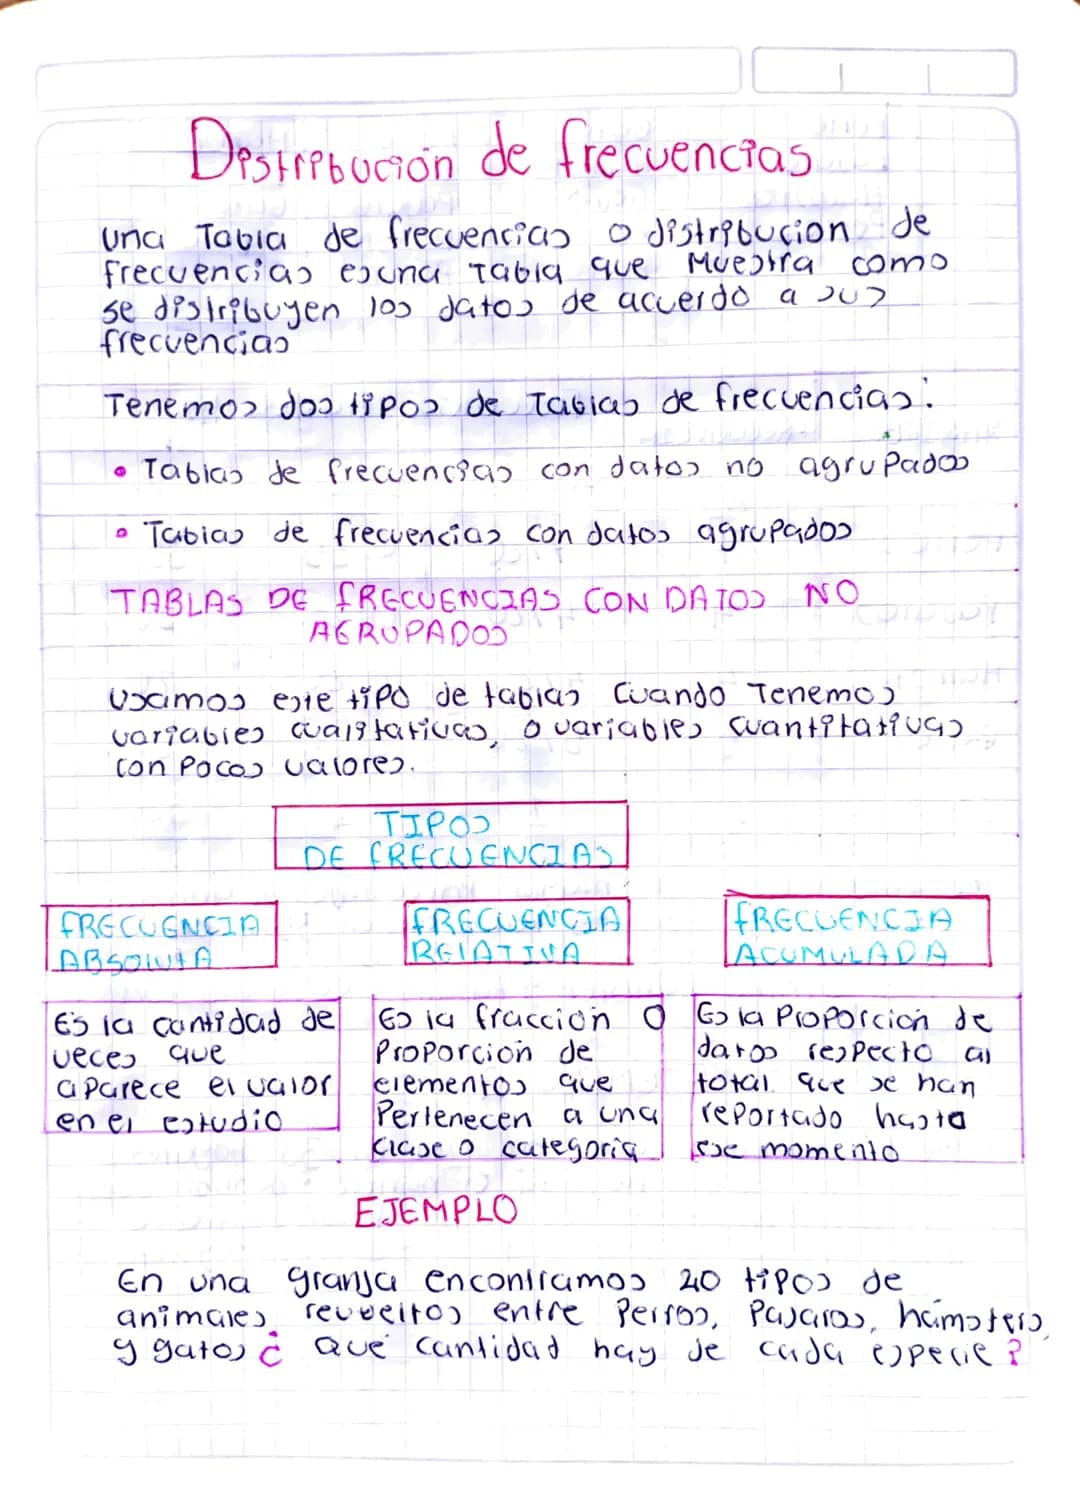 Distribución de frecuencias
Una Tabla de frecuencias o distribucion de
frecuencias es una Tabla que Muestra como
se distribuyen los datos de acuerdo a sus
frecuencias
Tenemos dos tipos de Tablas de frecuencias:
• Tablas de frecuencias con datos no agrupados
• Tablas de frecuencias con datos agrupados
TABLAS DE FRECUENCIAS CON DATOS NO
AGRUPADOS
Usamos este tipo de tablas Cuando Tenemos
variables cualitativas, o variables cuantitativas
con Pocos valores.
TIPOS
DE FRECUENCIAS
FRECUENCIA
ABSOLUTA
FRECUENCIA
RELATIVA
FRECUENCIA
ACUMULADA
Es la cantidad de
veces que
aparece el valor
en el estudio
Es la fraccion o
Proporcion de
elementos que
Pertenecen a una
clase o categoria
Es la Proporcion de
datos respecto al
total que se han
reportado hasta
ese momento
EJEMPLO
En una granja encontramos 20 tipos de
animales revueltos entre Perros, Pajaros, hámsters
y gatos ¿ Que cantidad hay de cada especie ?